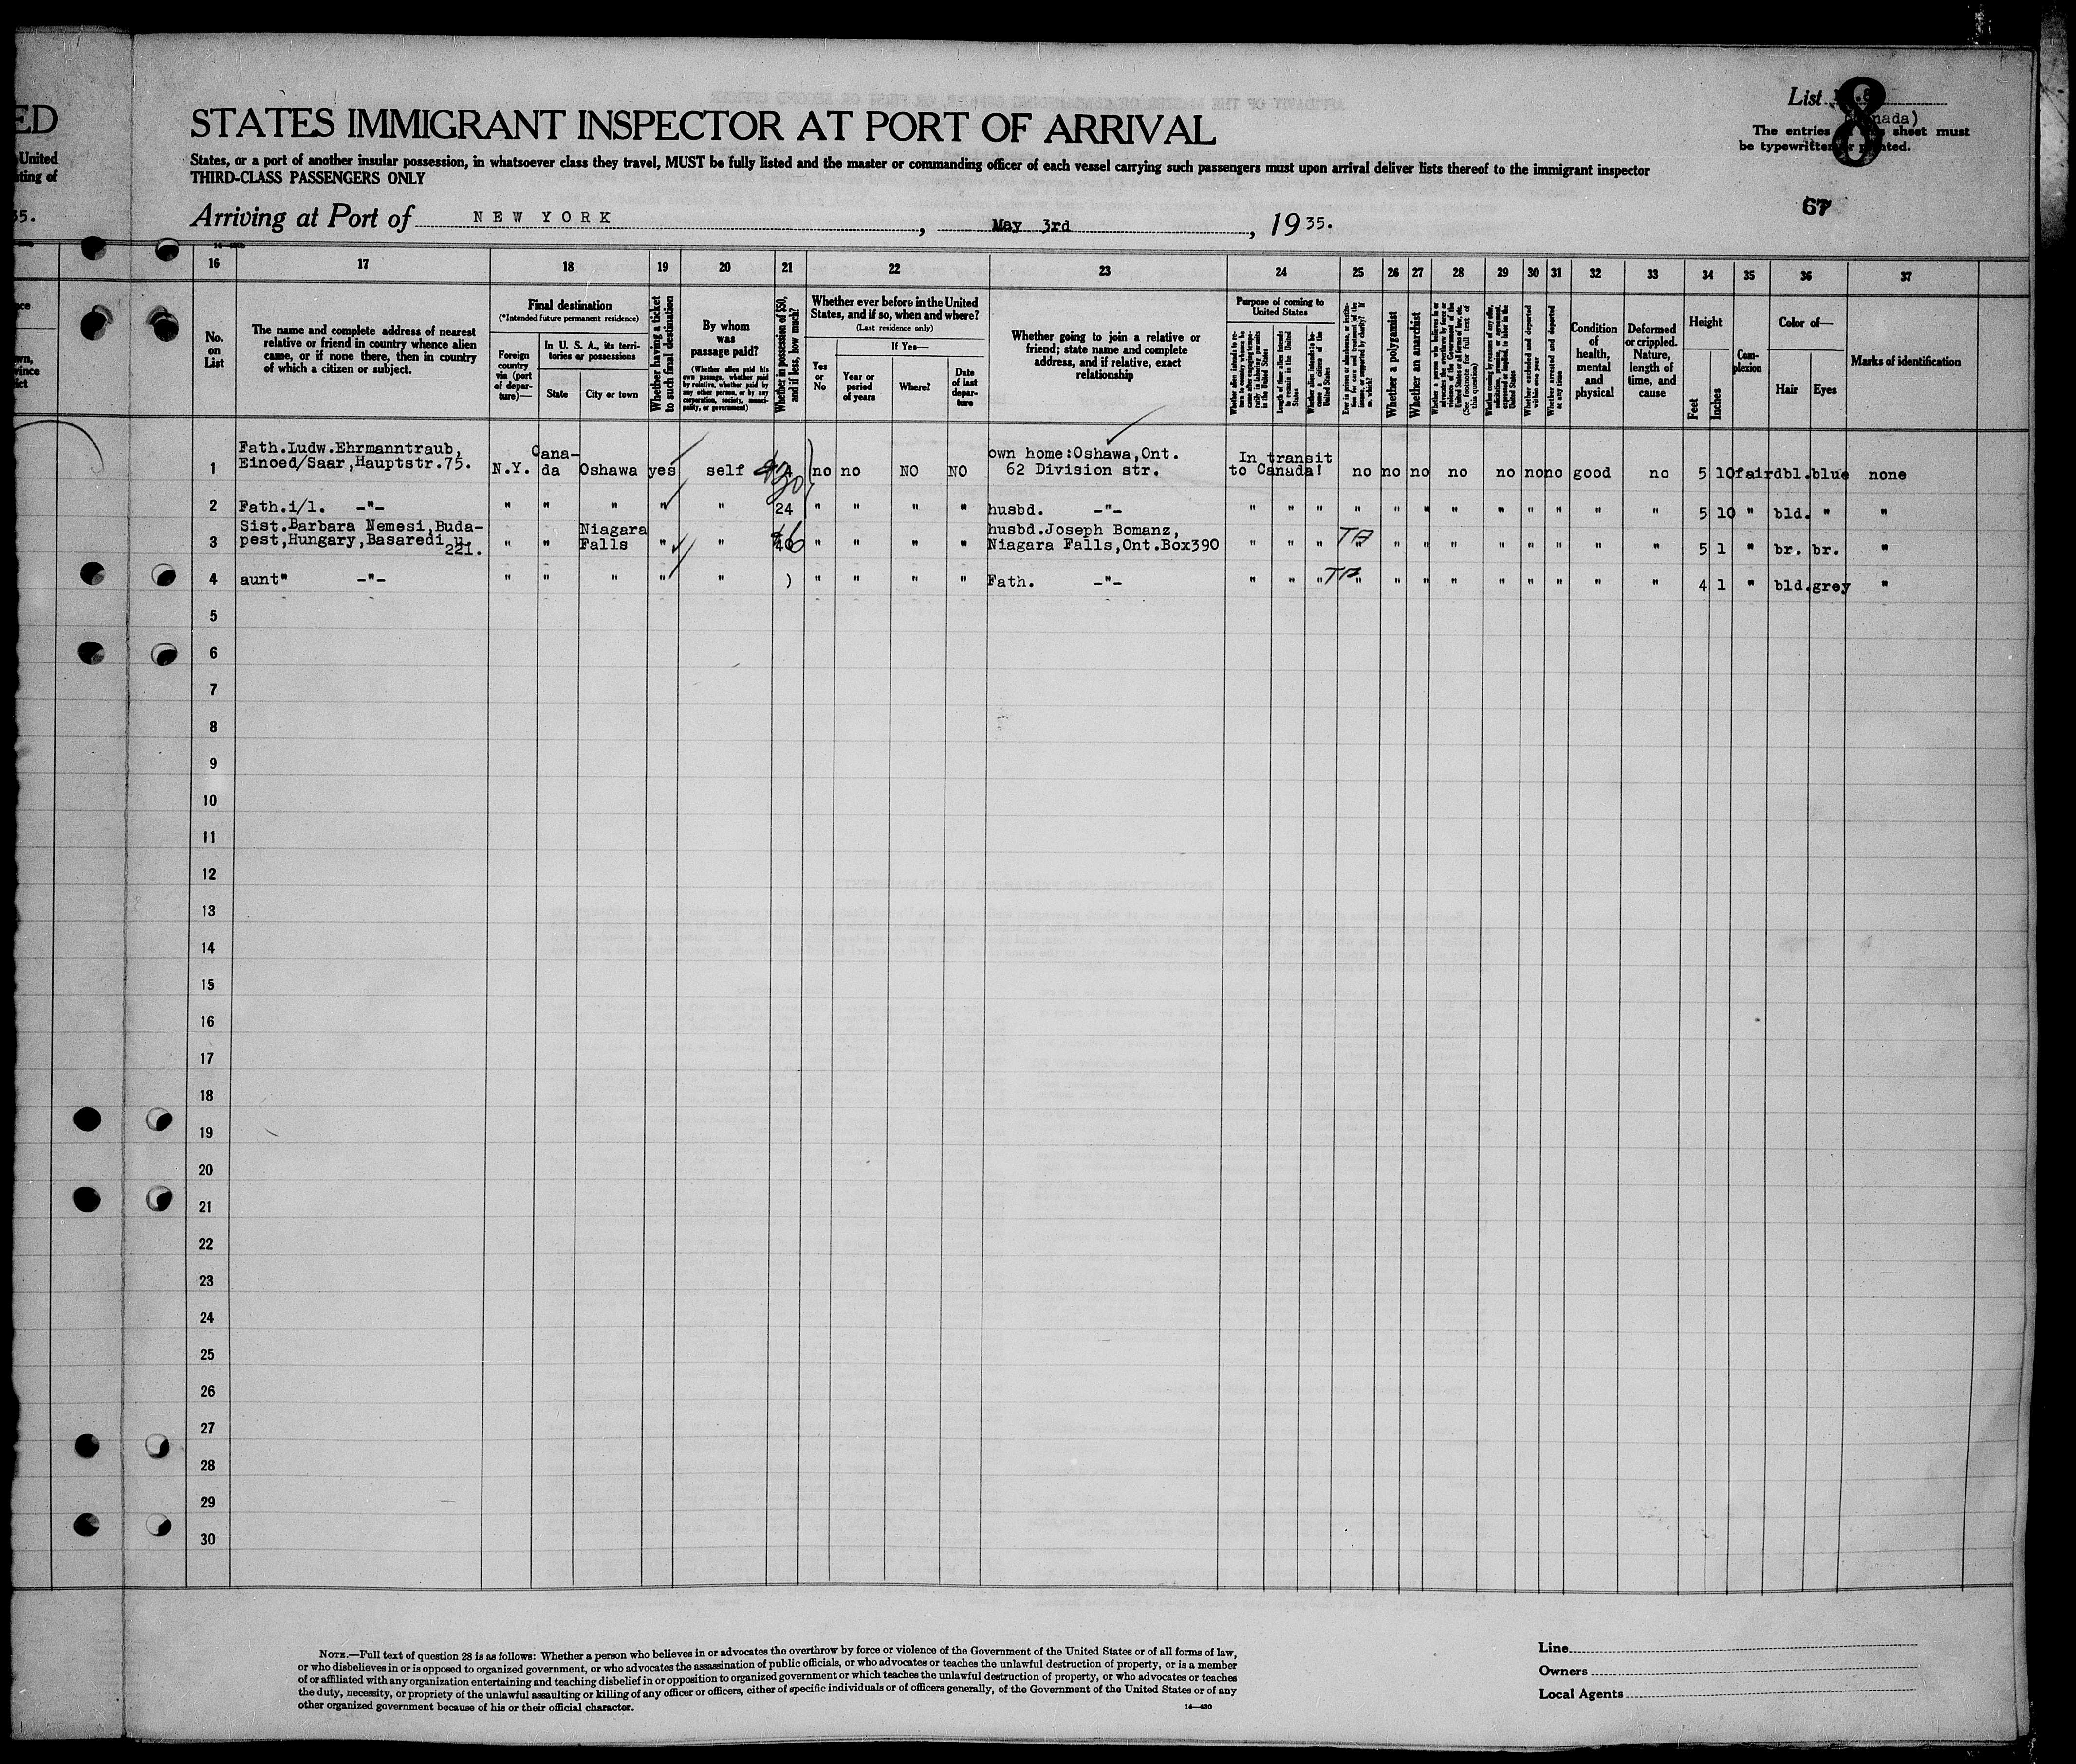 ED
United
sting of
35.
STATES IMMIGRANT INSPECTOR AT PORT OF ARRIVAL
States, or a port of another insular possession, in whatsoever class they travel, MUST be fully listed and the master or commanding officer of each vessel carrying such passengers must upon arrival deliver lists thereof to the immigrant inspector
THIRD-CLASS PASSENGERS ONLY
Arriving at Port of NEW YORK, May 3rd, 1935.
List 8
The entries sheet must
be typewritten or printed.
67
16 17 18 19 20 21 22 23 24 25 26 27 28 29 30 31 32 33 34 35 36 37
No. on List
The name and complete address of nearest relative or friend in country whence alien came, or if none there, then in country of which a citizen or subject.
Final destination
(*Intended future permanent residence)
Foreign country via (port of departure)—
In U. S. A., its territories or possessions
State
City or town
Whether having a ticket to such final destination
By whom was passage paid?
(Whether alien paid his own passage, whether paid by relative, whether paid by any other person, or by any corporation, society, municipality, or government)
Whether in possession of $50, and if less, how much?
Whether ever before in the United States, and if so, when and where?
(Last residence only)
Yes or No
If Yes—
Year or period of years
Where?
Date of last departure
Whether going to join a relative or friend; state name and complete address, and if relative, exact relationship
Purpose of coming to United States
Length of time alien intends to remain in the United States
Whether alien intends to become a citizen of the United States
Whether a polygamist
Whether an anarchist
(See footnote for full text of this question)
Whether excluded and deported within one year
Whether arrested and deported at any time
Condition of health, mental and physical
Deformed or crippled. Nature, length of time, and cause
Height
Feet
Inches
Complexion
Color of—
Hair
Eyes
Marks of identification
1 Fath.Ludw.Ehrmanntraub, Einoed/Saar,Hauptstr.75. N.Y. Cana-da Oshawa yes self 30 no no NO NO own home:Oshawa,Ont. 62 Division str. In transit to Canada! no no no no no no no good no 5 10 fair dbl. blue none
2 Fath.i/l. -"- " " " " " 24 " " " " husbd. -"- " " " " " " " " " " " " 5 10 " bld. " "
3 Sist.Barbara Nemesi,Buda-pest,Hungary,Basaredi u. 221. " " Niagara Falls " " " " " " husbd.Joseph Bomanz, Niagara Falls,Ont.Box390 " " " " " " " " " " " " 5 1 " br. br. "
4 aunt" -"- " " " " " ) " " " " Father. -"- " " " " " " " " " " " " 4 1 " bld. grey "
5
6
7
8
9
10
11
12
13
14
15
16
17
18
19
20
21
22
23
24
25
26
27
28
29
30
NOTE.—Full text of question 28 is as follows: Whether a person who believes in or advocates the overthrow by force or violence of the Government of the United States or of all forms of law,
or who disbelieves in or is opposed to organized government, or who advocates the assassination of public officials, or who advocates or teaches the unlawful destruction of property, or is a member
of or affiliated with any organization entertaining and teaching disbelief in or opposition to organized government or which teaches the unlawful destruction of property, or who advocates or teaches
the duty, necessity, or propriety of the unlawful assaulting or killing of any officer or officers, either of specific individuals or of officers generally, of the Government of the United States or of any
other organized government because of his or their official character.
14—430
Line
Owners
Local Agents